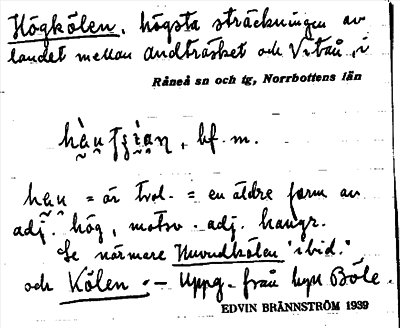 Högkölen, högsta sträckningen av
landet mellan Andträsket och Vitån, i
Råneå sn och tg, Norrbottens län
bf. m.
= är trol. = en äldre form av
adj. hög, motsv. adj.
Se närmare Huvudkölen ibid.
och Kölen. – Uppg. från byn Böle.
EDVIN BRÄNNSTRÖM 1939